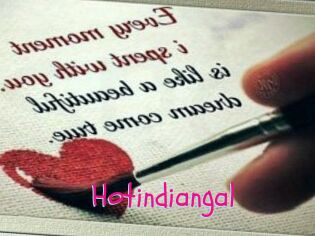 Every moment
i spent with you.
is like a beautiful
dream come true.
Hotindiangal